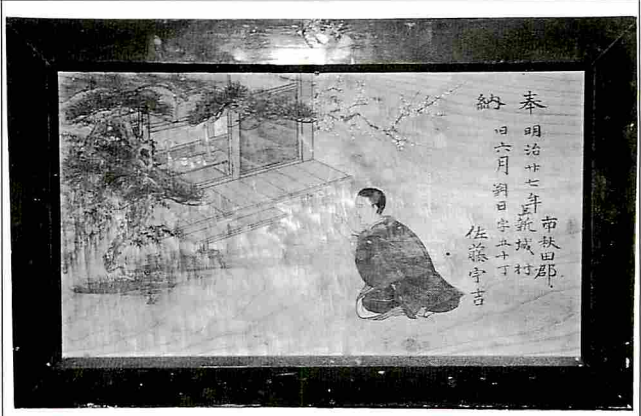 奉納
明治廿七年
旧六月朔日
南秋田郡
上新城村
字五十丁
佐藤宇吉